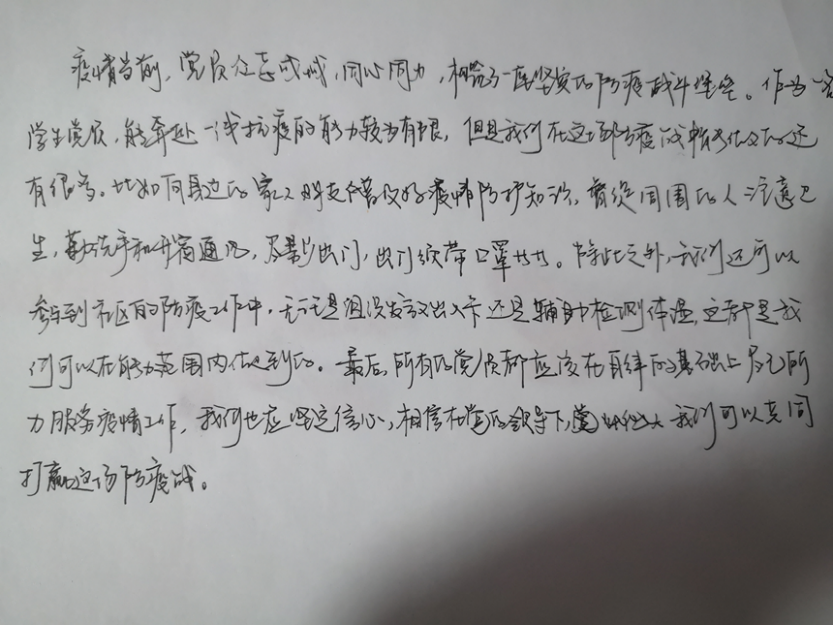 疫情当前,党员众志成城,同心同力,构筑了一座坚实的防疫战斗堡垒。作为一名
学生党员,能奔赴一线抗疫的能力较为有限,但是我们在这场防疫战中能做的还
有很多。比如向身边的家人朋友做好疫情防护知识,督促周围的人注意卫
生,勤洗手和开窗通风,尽量少出门,出门须带口罩等等。除此之外,我们还可以
参与到社区的防疫工作中,无论是组织发放出入卡还是辅助检测体温,这都是我
们可以在能力范围内做到的。最后,所有的党员都应该在自律的基础上尽己所
力服务疫情工作,我们也应坚定信心,相信在党的领导下,我们可以共同
打赢这场防疫战。